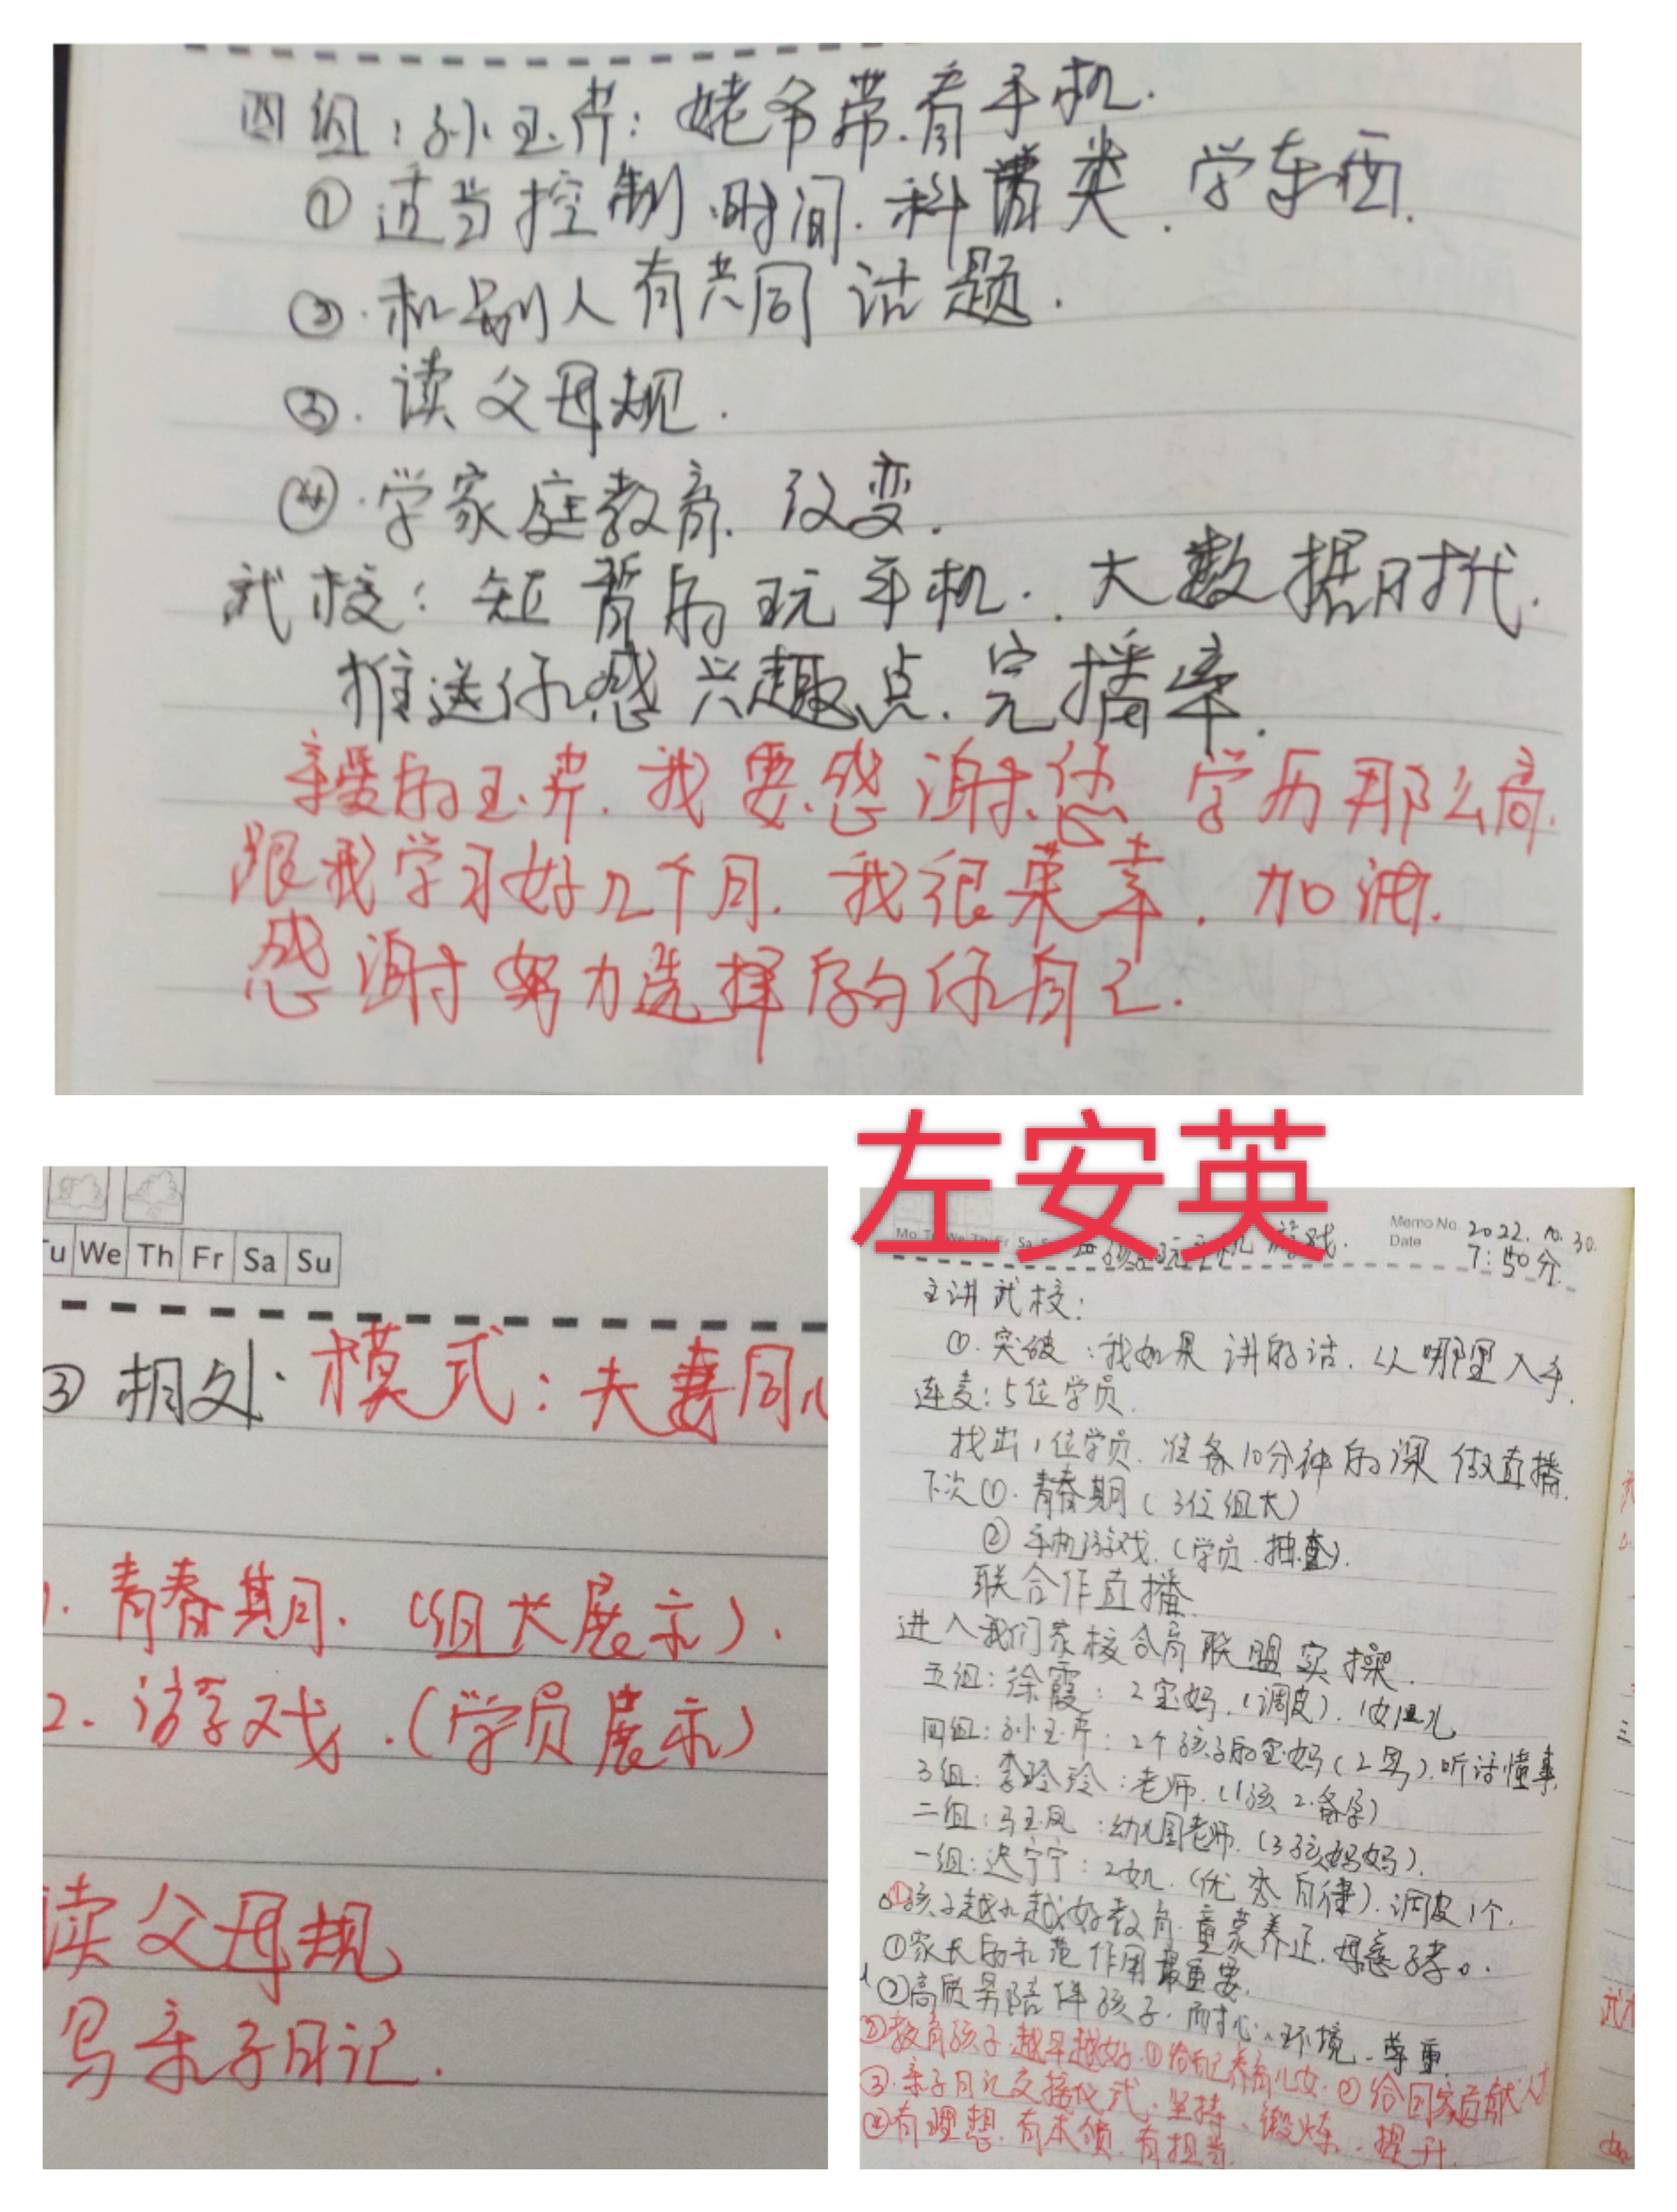 四组：孙玉芹：姥爷带.看手机.
①适当控制.时间.科普类.学东西.
②.和别人有共同话题.
③.读父母规.
④.学家庭教育.改变.
武校：短暂的玩手机.大数据时代.
推送你感兴趣点.完播率.
亲爱的玉芹.我要感谢您 学历那么高.
跟我学习好几个月.我很荣幸.加油.
感谢努力选择的你自己.
左安英
Tu We Th Fr Sa Su
③相处.模式：夫妻同
1.青春期.(组长展示).
2.游戏.(学员展示)
读父母规
写亲子日记.
Mo Tu We Th Fr Sa
玩手机游戏.
Memo No.
Date
2022.10.30.
7:50分
主讲武校：
①.突破：我如果讲的话.从哪里入手.
连麦：5位学员.
找出1位学员.准备10分钟的课 做直播.
下次①.青春期(3位组长)
②手机游戏.(学员.抽查).
联合作直播.
进入我们家校合育联盟实操.
五组：徐霞：2宝妈.(调皮).1女1儿
四组：孙玉芹：2个孩子的宝妈(2男).听话懂事.
3组：李玲玲：老师.(1孩 2.备孕)
二组：马玉凤：幼儿园老师.(3孩妈妈).
一组：迟宁宁：2女儿.(优秀自律).调皮1个.
孩子越小越好教育.童蒙养正.母慈子孝.
①家长的示范作用最重要.
②高质男陪伴孩子.耐心、环境.尊重.
②教育孩子越早越好.①给自己养育儿女.②给国家贡献人才
③.亲子日记交接仪式.坚持.锻炼.提升.
④有理想.有本领.有担当.